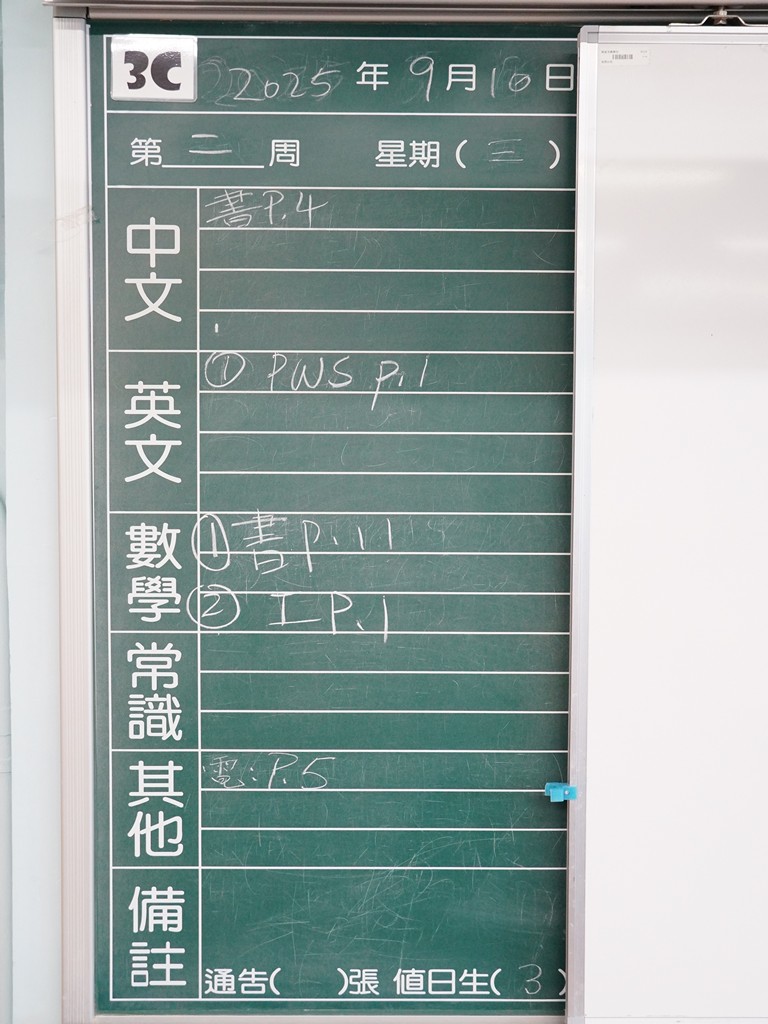 3C 2025年9月10日
第二周 星期(三)
中文 書P.4
英文 ① PWS p.1
數學 ① 書p.11
② 工P.1
常識
其他 電:P.5
備註
通告( )張 值日生(3)